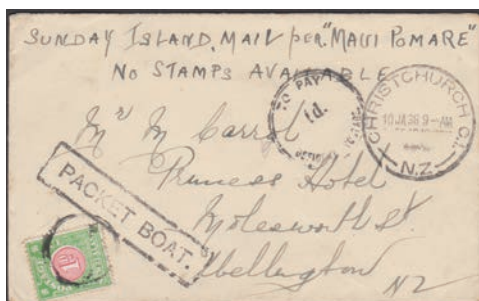 SUNDAY ISLAND, MAIL per "MAUI POMARE"
NO STAMPS AVAILABLE
TO PAY
1d.
CHRISTCHURCH C.1.
10 JA 38 9 - AM
N.Z.
Mr M Carrol
Princess Hotel
Molesworth St.
Wellington
NZ
PACKET BOAT.
1D